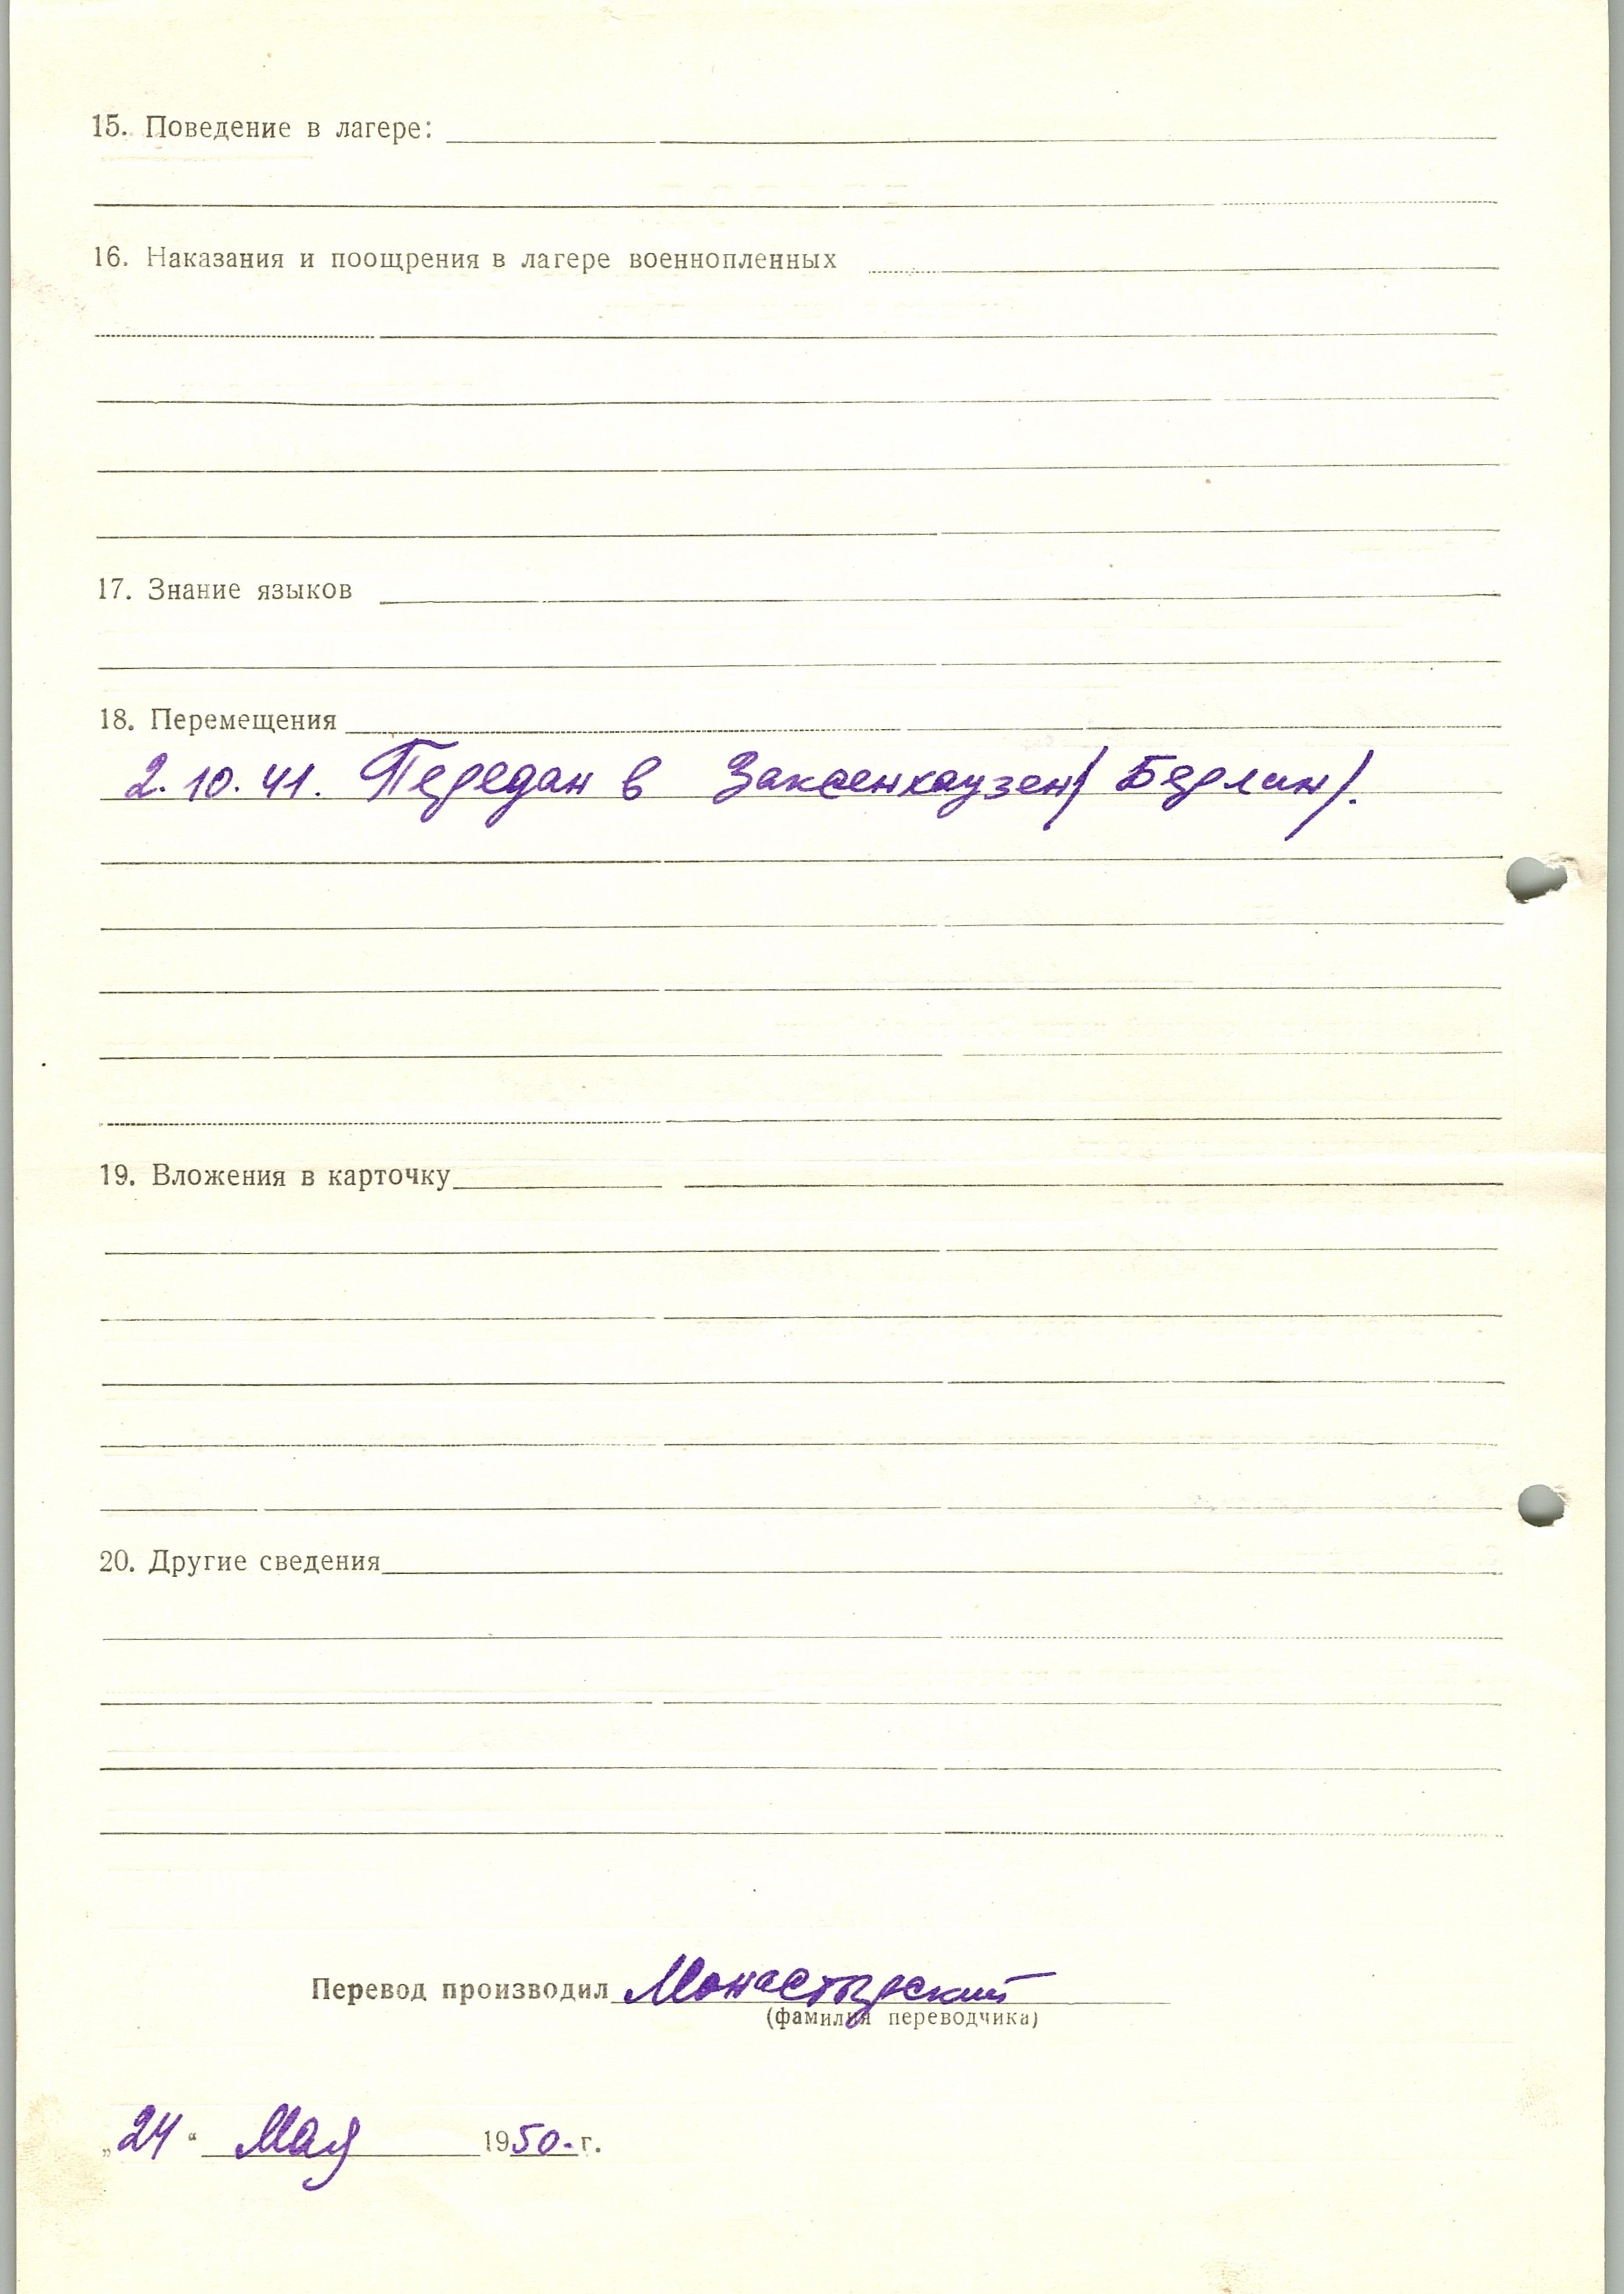 15. Поведение в лагере:
16. Наказания и поощрения в лагере военнопленных
17. Знание языков
18. Перемещения
2.10.41. Передан в Заксенхаузен/Берлин/.
19. Вложения в карточку
20. Другие сведения
Перевод производил Монастырский
(фамилия переводчика)
„24“ Мая 1950.г.